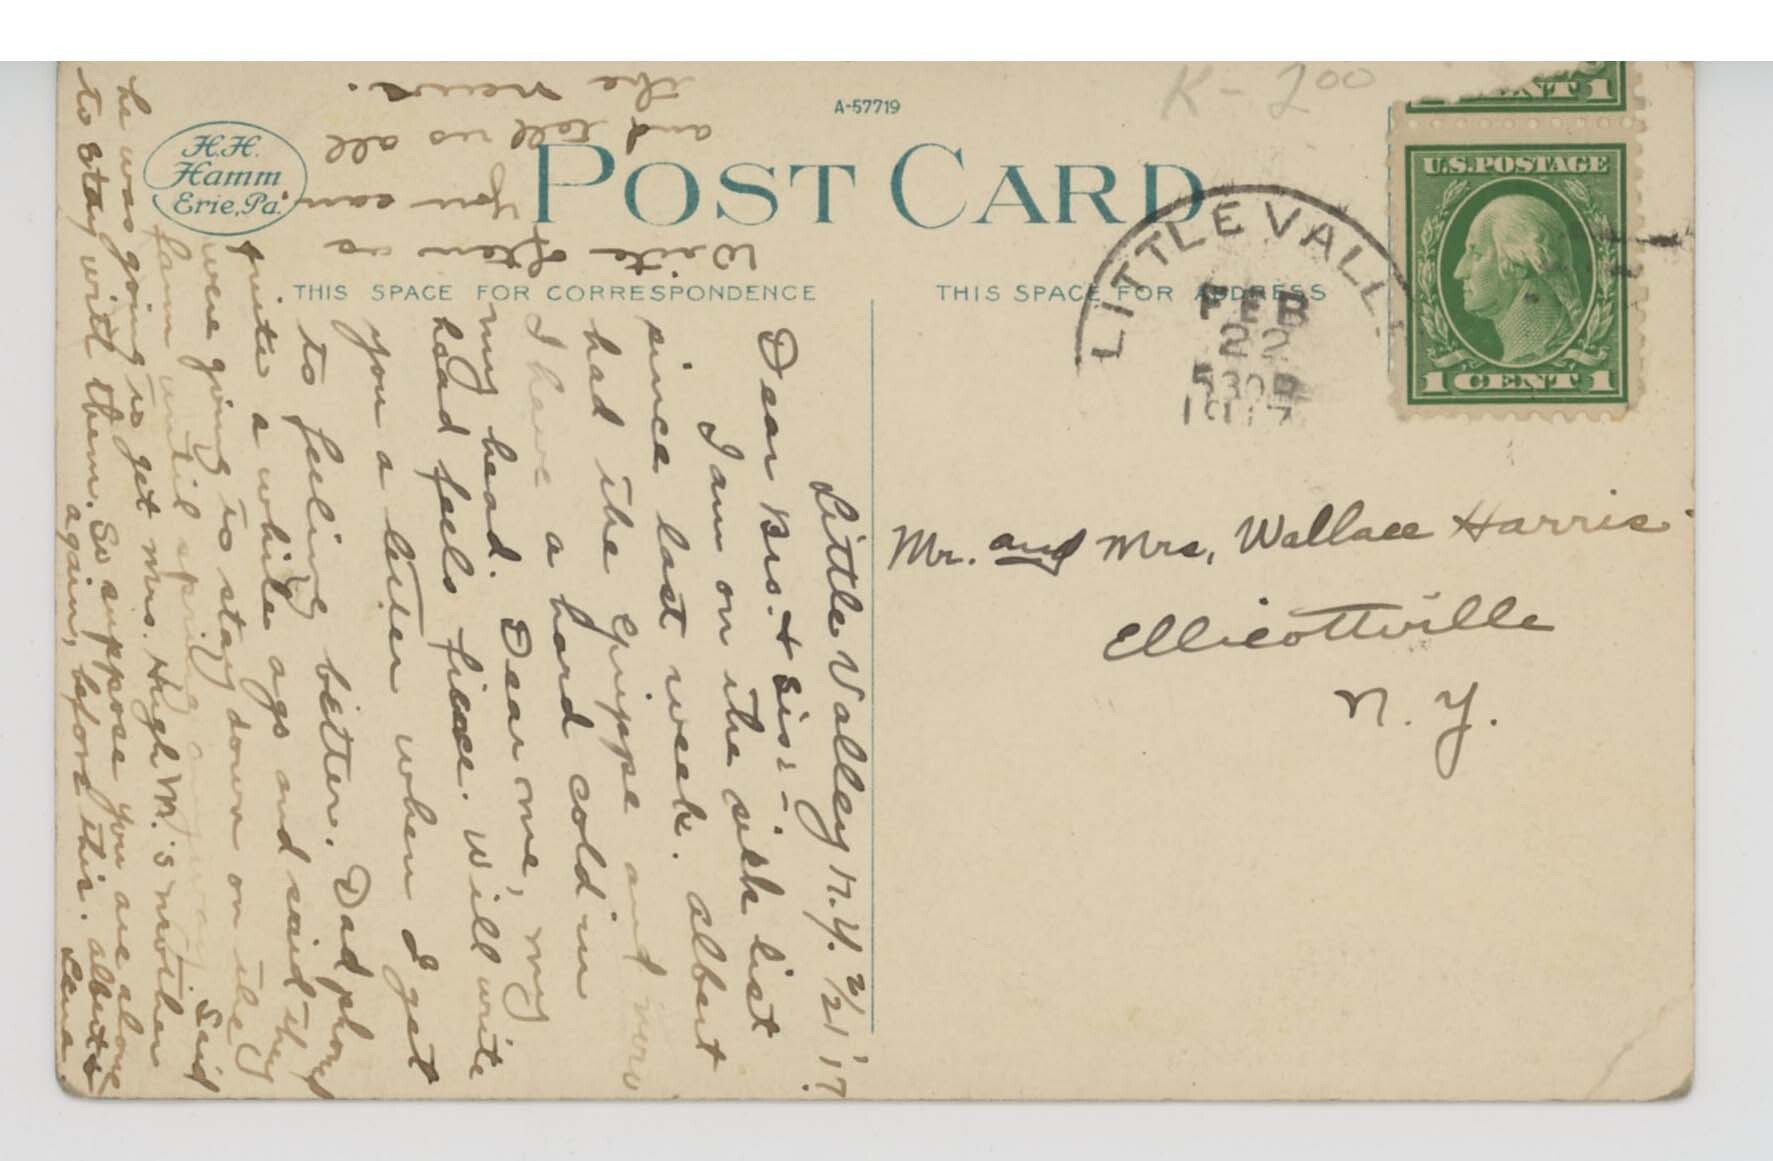 A-57719
K - 2 00
H.H.
Hamm
Erie, Pa.
POST CARD
THIS SPACE FOR CORRESPONDENCE
THIS SPACE FOR ADDRESS
CENT 1
U.S. POSTAGE
1 CENT 1
LITTLE VALL
FEB
22
30 P
1917
Mr. and Mrs, Wallace Harris
Ellicottville
N. Y.
Little Valley N.Y. 2/21'17.
Dear Bro. + Sis: -
I am on the sick list
since last week. Albert
had the Grippe and now
I have a hard cold in
my head. Dear me, my
head feels fierce. Will write
you a letter when I get
to feeling better. Dad phoned
quite a while ago and said they
were going to stay down on the
farm until spring anyway. Said
he was going to get Mrs. Hugh M.'s mother
to stay with them. So suppose you are alone
again, before this. Albert &
Lena.
Write often as
you can.
and tell us all
the news.